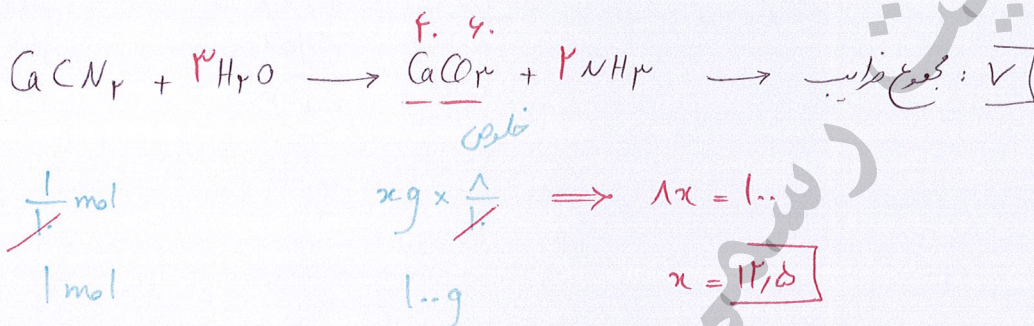 ۴۰ ۶۰
CaCN۲ + ۳H۲O → CaCO۳ + ۲NH۳ → مجموع ضرایب : ۷
خلوص
۱/۱۰ mol xg × ۸/۱۰ ⇒ ۸x = ۱۰۰
۱ mol ۱۰۰g x = ۱۲,۵